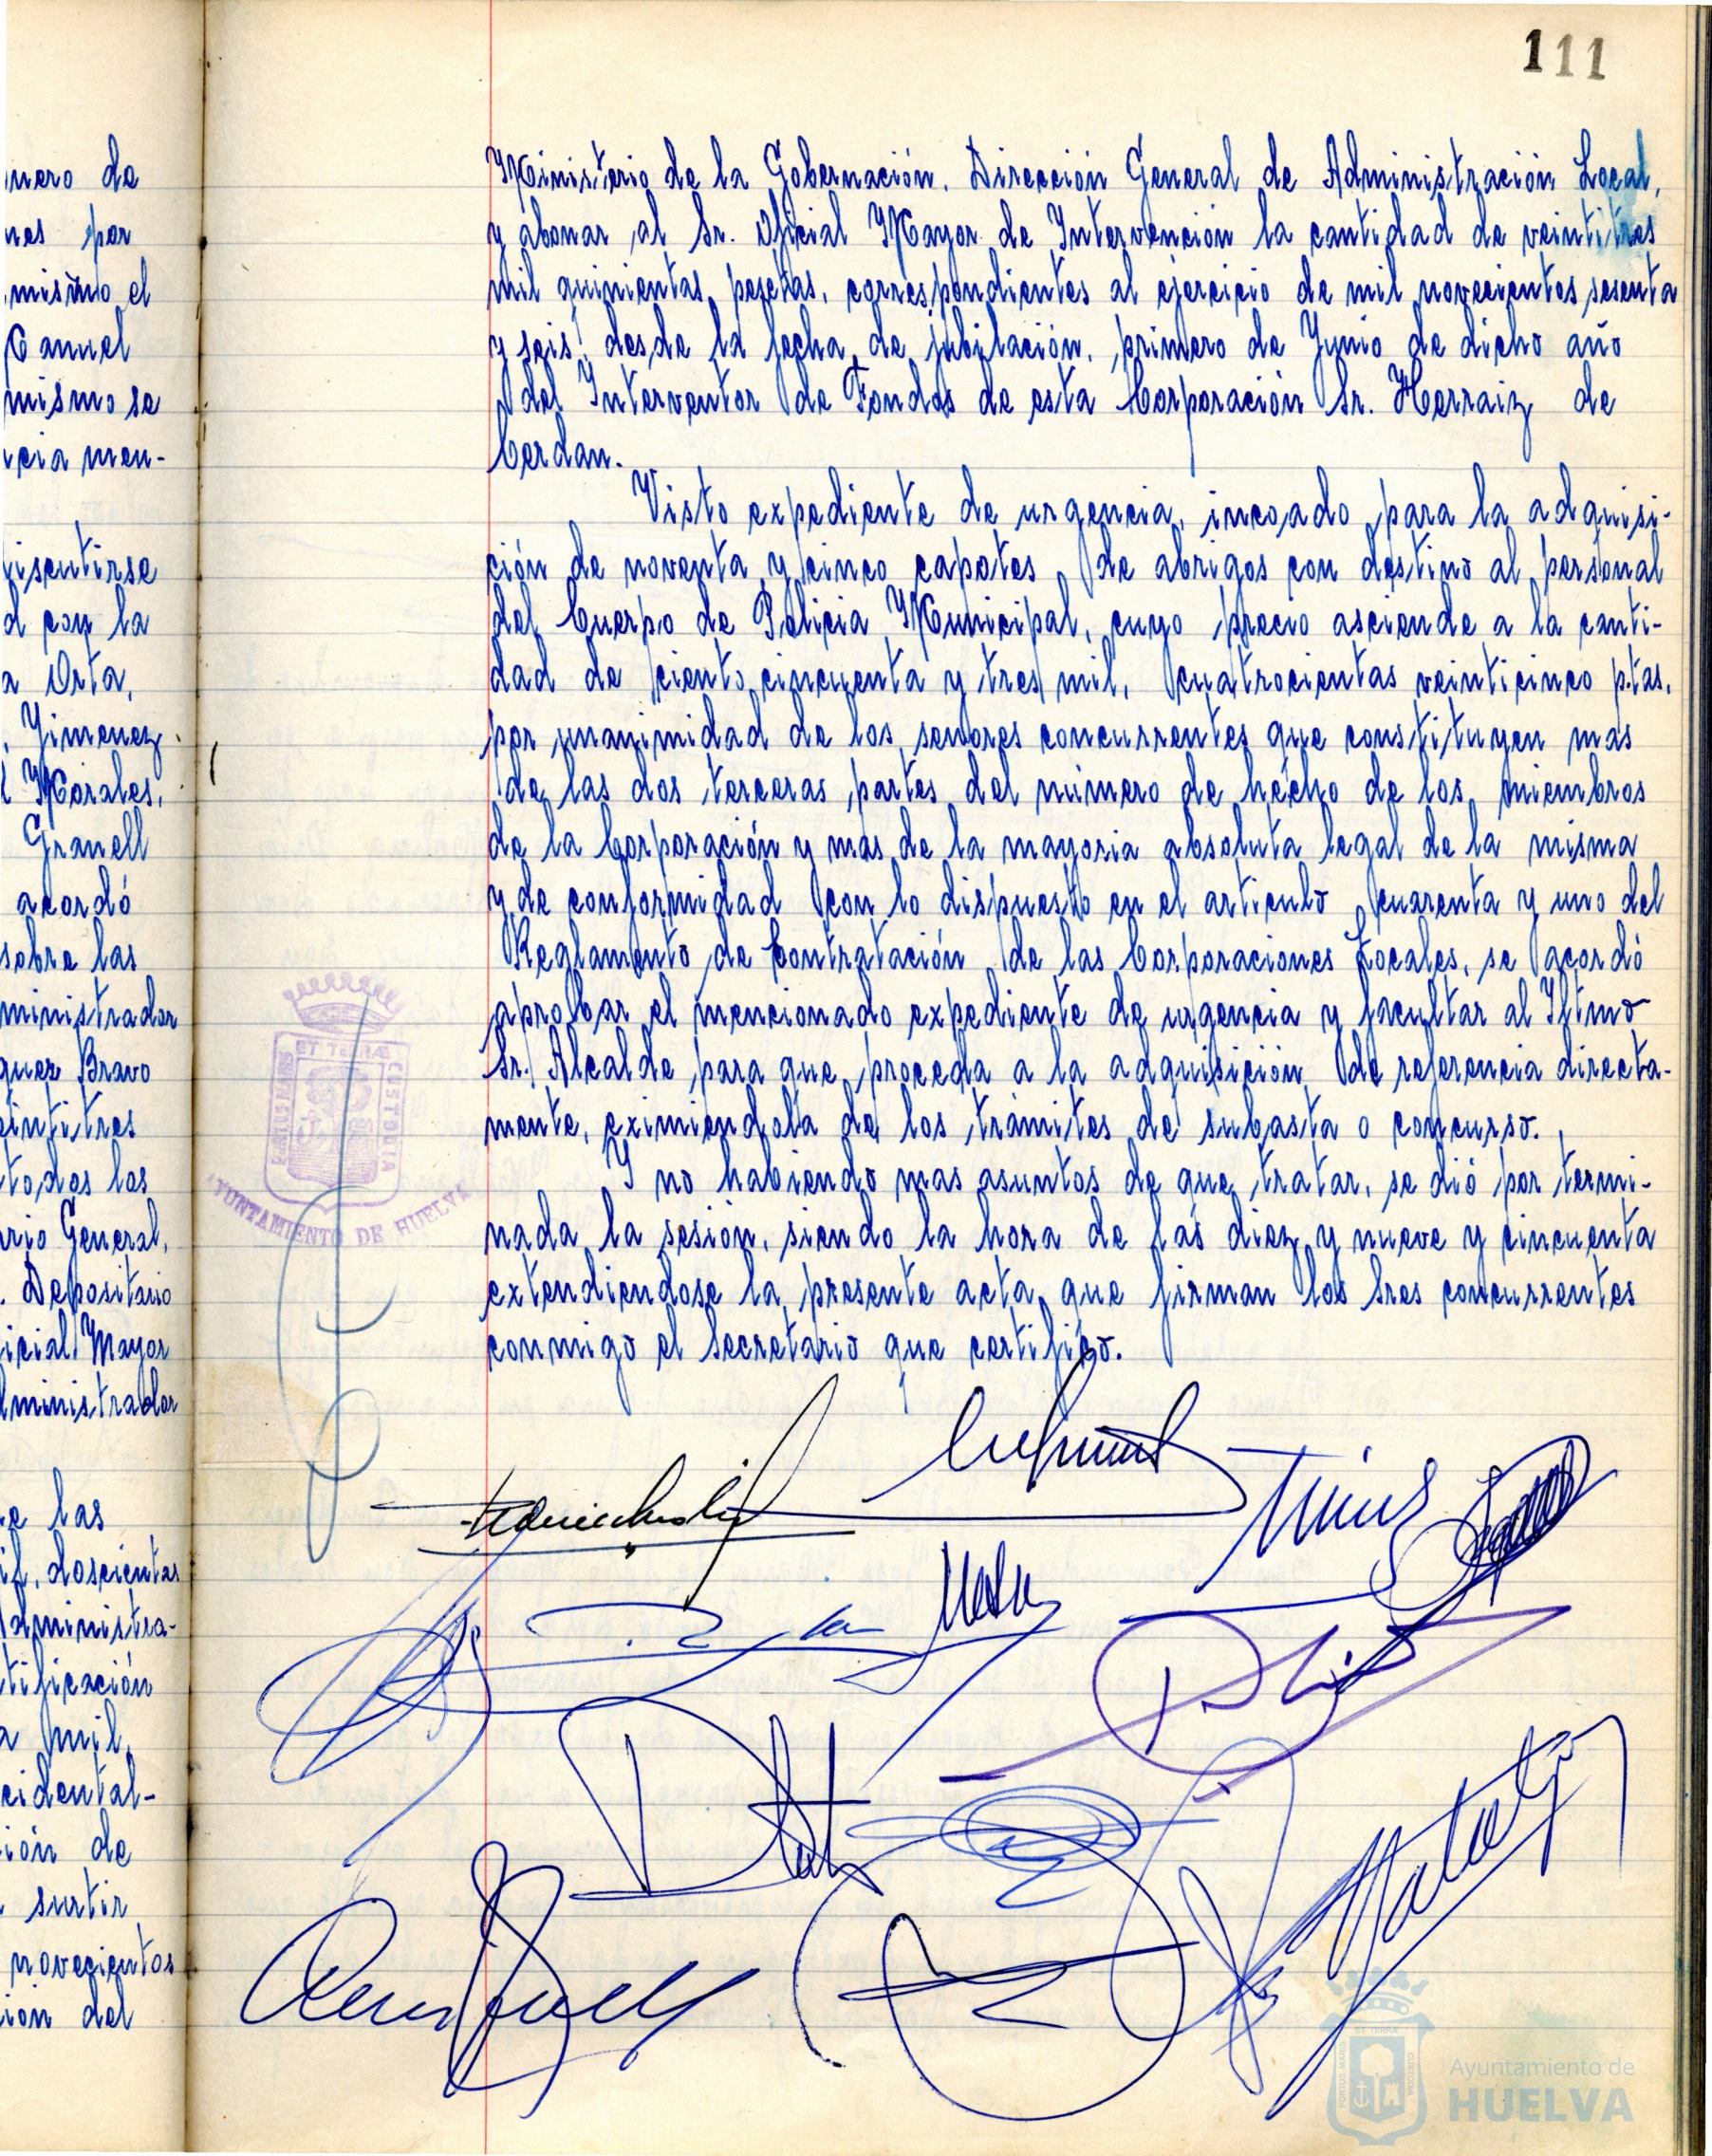 111
nero de
nes por
mismo el
Camuel
mismo se
cia men-
isentirse
d con la
a Orta,
, Yimenez
l Morales,
Granell
acordó
sobre las
ministrador
quez Bravo
eintitres
todos los
ario General,
. Depositario
icial Mayor
dministrador
e las
il, doscientas
Administra-
tificación
a mil,
cidental-
ión de
surtir
novecientos
ion del
Ministerio de la Gobernación. Dirección General de Administración Local,
y abonar al Sr. Oficial Mayor de Intervención la cantidad de veintitres
mil quinientas pesetas, correspondientes al ejercicio de mil novecientos sesenta
y seis, desde la fecha de jubilación, primero de Junio de dicho año
del Interventor de Fondos de esta Corporación Sr. Herraiz de
Cerdan.
Visto expediente de urgencia, incoado para la adquisi-
ción de noventa y cinco capotes de abrigos con destino al personal
del Cuerpo de Policia Municipal, cuyo precio asciende a la canti-
dad de ciento cincuenta y tres mil, cuatrocientas veinticinco ptas,
por unanimidad de los señores concurrentes que constituyen mas
de las dos terceras partes del número de hecho de los miembros
de la Corporación y mas de la mayoria absoluta legal de la misma
y de conformidad con lo dispuesto en el articulo cuarenta y uno del
Reglamento de Contratación de las Corporaciones Locales, se acordó
aprobar el mencionado expediente de urgencia y facultar al Iltmo
Sr. Alcalde para que proceda a la adquisición de referencia directa-
mente, eximiendola de los trámites de subasta o concurso.
Y no habiendo mas asuntos de que tratar, se dió por termi-
nada la sesión, siendo la hora de las diez y nueve y cincuenta
extendiendose la presente acta que firman los Sres concurrentes
conmigo el Secretario que certifico.
ET TERRÆ
CUSTODIA
AYUNTAMIENTO DE HUELVA
Ayuntamiento de
HUELVA